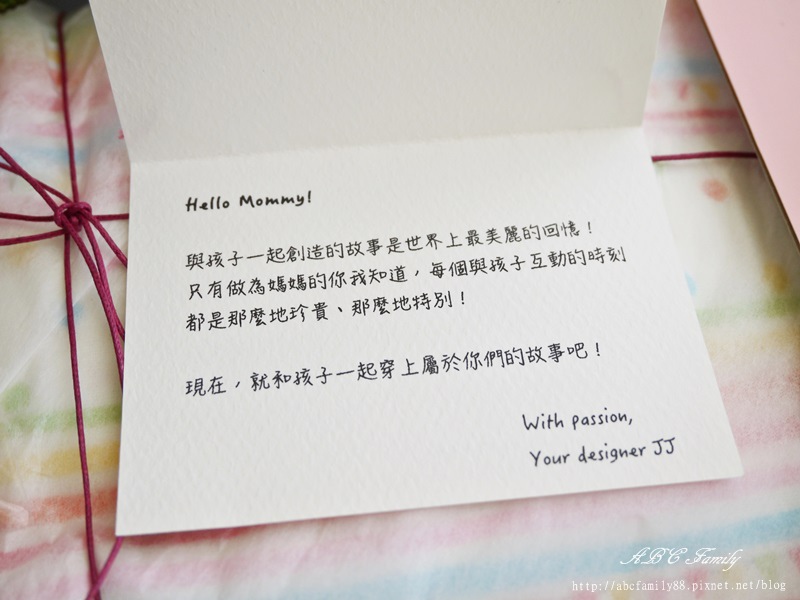 Hello Mommy!
與孩子一起創造的故事是世界上最美麗的回憶！
只有做為媽媽的你我知道，每個與孩子互動的時刻
都是那麼地珍貴、那麼地特別！
現在，就和孩子一起穿上屬於你們的故事吧！
With passion,
Your designer JJ
ABC Family
http://abcfamily88.pixnet.net/blog